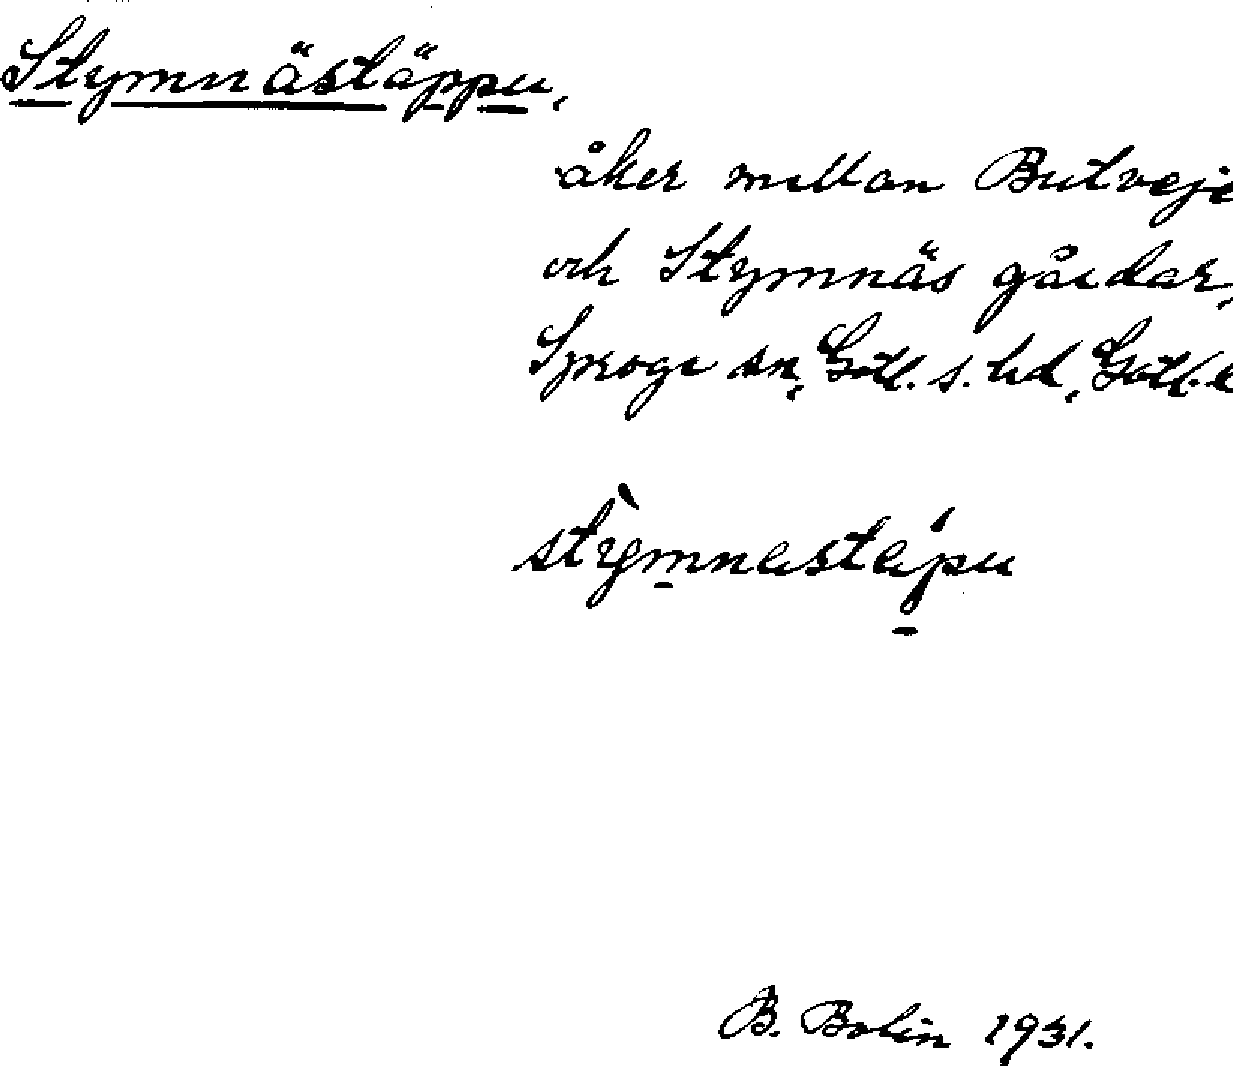 Stymnästäppu,
åker mellan Butveje
och Stymnäs gårdar,
Sproge sn, Gotl. s. hd, Gotl. l
stỳmnastápu
B. Bolin 1931.